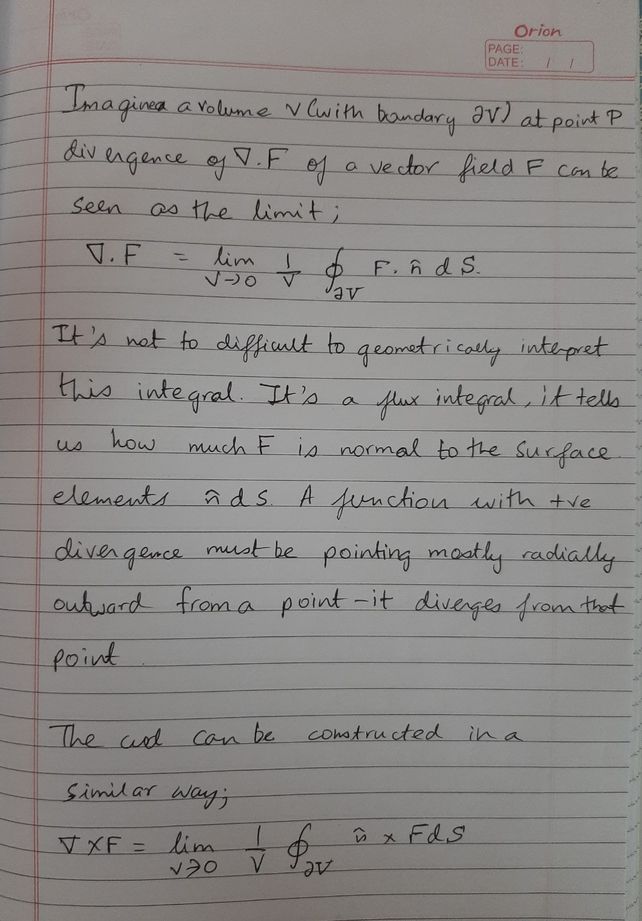 Orion
PAGE:
DATE: / /
Imagines a volume V (with boundary ∂V) at point P
divergence of ∇.F of a vector field F can be
seen as the limit;
∇.F = lim V→0 1/V ∮∂V F. n̂ dS.
It's not to difficult to geometrically interpret
this integral. It's a flux integral, it tells
us how much F is normal to the surface
elements n̂ dS. A function with +ve
divergence must be pointing mostly radially
outward from a point - it diverges from that
point.
The curl can be constructed in a
similar way;
∇×F = lim V→0 1/V ∮∂V n̂ × F dS